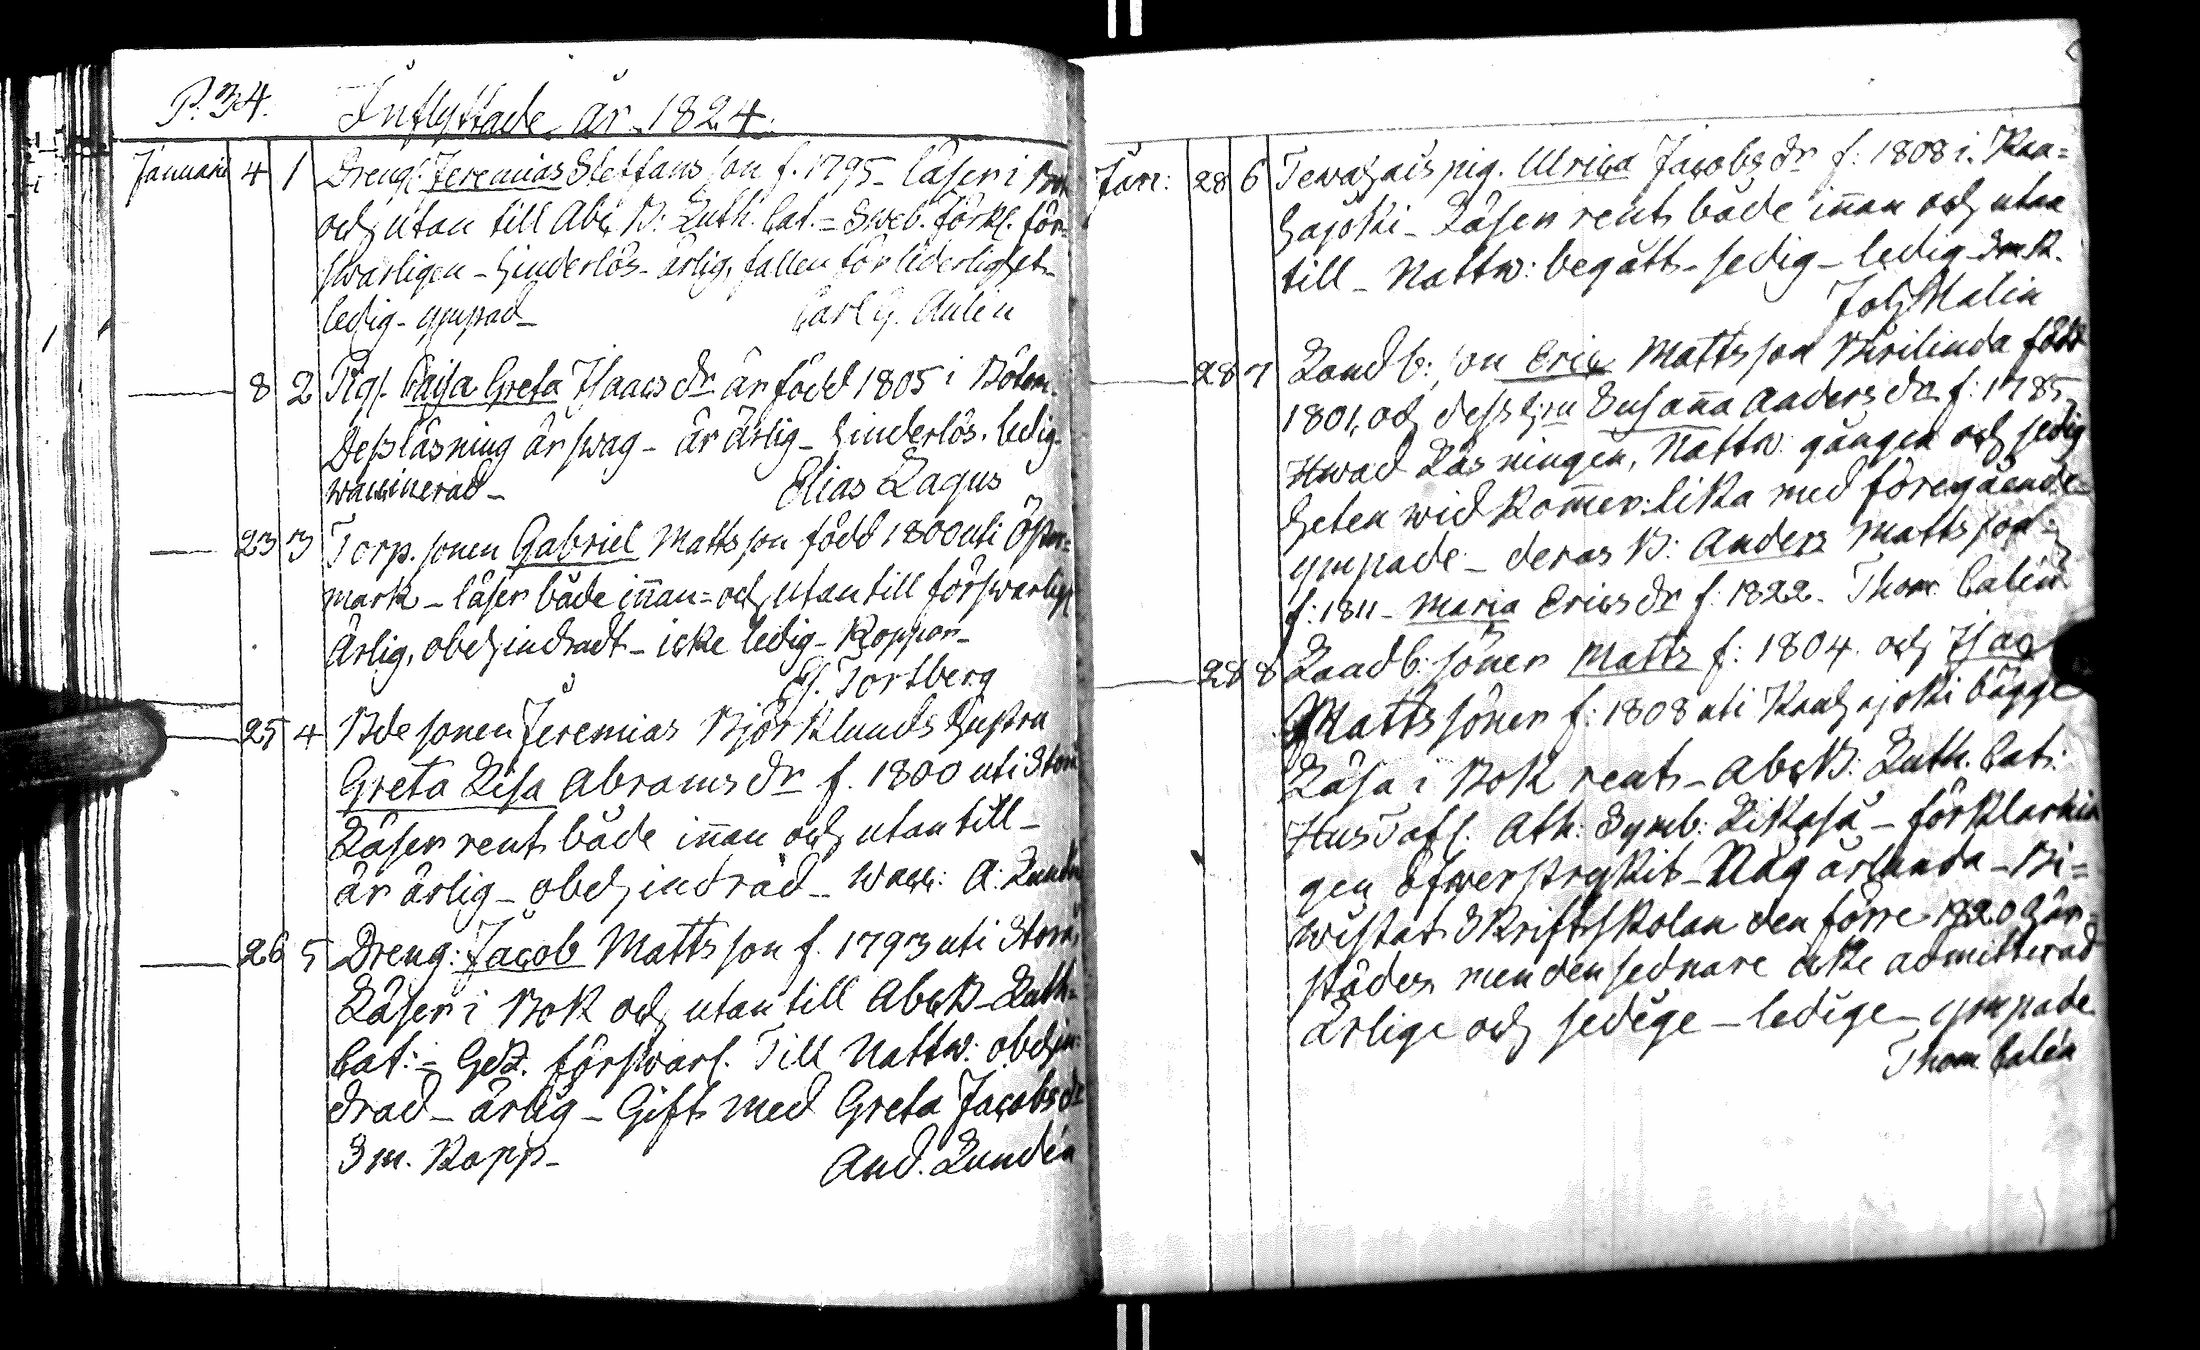 P. 34. Inflyttade år 1824.
Januarii 4 1 Dreng: Jeremias Steffans son f. 1795 - läser i Bok
och utan till Abc B: Luth. Cat. = Sweb. förkl. för-
swarligen - hinderlös - ärlig, fallen för liderlighet -
ledig - ympad - Carl G. Aulin
8 2 Pig. Caisa Greta Isaacs dr är född 1805 i Bötom.
Dess läsning är swag - är ärlig - hinderlös. ledig -
waccinerad - Elias Lagus
23 3 Torp. sonen Gabriel Matts son född 1800 uti Öster-
mark - läser både iñan = och utan till förswarligt
Ärlig, obehindradt - icke ledig - Koppor -
Forsberg
25 4 Bde sonen Jeremias Björklunds hustru
Greta Lisa Abrams dr f. 1800 uti Storå
Läser rent både iñan och utan till -
är ärlig - obehindrad - wacc: A: Lundén
26 5 Dreng: Jacob Matts son f. 1793 uti Storå,
Läser i Bok och utan till AbcB - Luth.
Cat: = förswarl. Till Nattw: obehin-
drad - ärlig - Gift med Greta Jacobs dr
3 m. Kopp - And. Lundén
Jan: 28 6 pig. Ulrica Jacobs dr f: 1808 i Kau=
hajoki - Läser rent både iñan och utan
till - Nattw: begått - sedig - ledig - Sm K.
Joh Malin
28 7 Landb: son Eric Matts son Kirilinda född
1801, och dess hru Susaña Anders dr f: 1785
Hwad Läsningen, Nattw. gången och sedig
heten wid kom̃er: lika med föregående -
ympade - deras B: Anders Matts son
f: 1811 - Maria Erics dr f: 1822 - Thom Calén
28 8 Landb: söner Matts f: 1804. och Isac
Matts söner f: 1808 uti Kauhajoki bägge
Läsa i Bok rent - AbcB: Luth. Cat:
Hustafl. Ath: Symb: Likaså - förklarnin
gen öfwerstrykit - Någorlunda - Bi=
wistat Skriftskolan den förre 1820 här-
städes men den sednare icke admitterad
Ärlige och sedige - ledige - ympade
Thom Calén